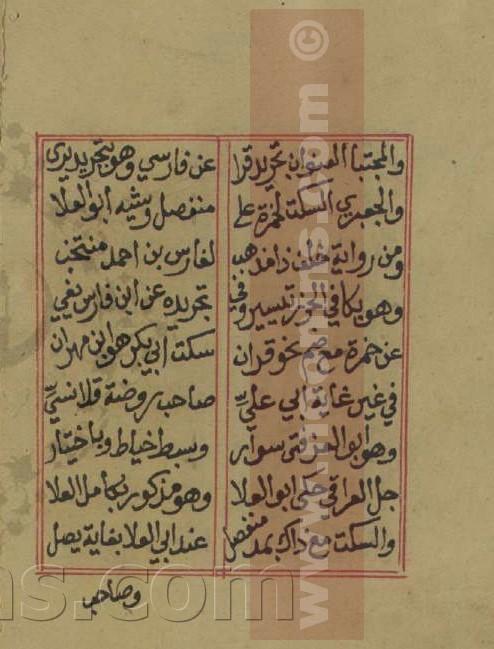 والمجتبا العنوان تجريد قرا عن فارسي وهو بتجريد يرى
والجعبري السكت لحمزة على منفصل وشبه ابو العلا
ومن رواية خلف ذا مذهب لفارس بن احمد منتجب
وهو بكافي الحرز تيسير وفي تجريده عن ابن فارس يفي
عن حمزة مع صم نحو قران سكت ابي بكر هو ابن مهران
في غير غاية ابي علي صاحب روضة قلانسي
وهو ابو العز فتى سوار وسبط خياط وباختيار
جل العراقي حلى ابو العلا وهو مذكور بكامل العلا
والسكت مع ذاك بمد منفصل عند ابي العلا بغاية يصل
وصاحب
www.
ns.com
©